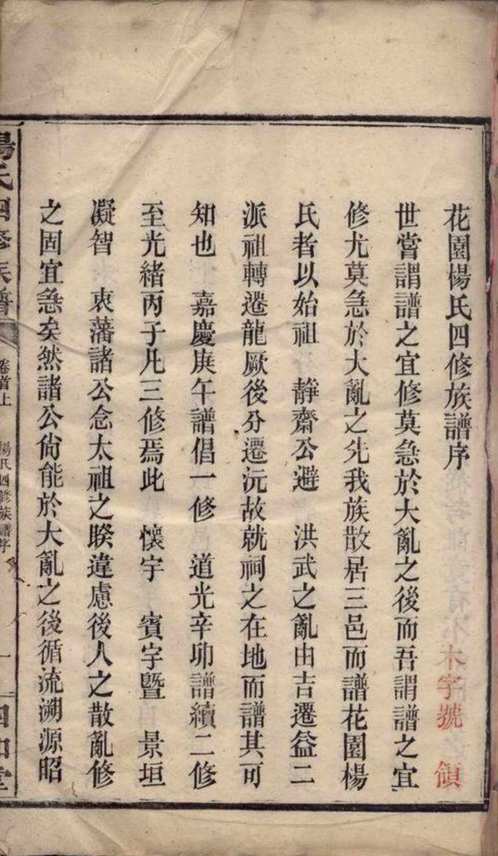 花園楊氏四修族譜序
世嘗謂譜之宜修莫急於大亂之後而吾謂譜之宜
修尤莫急於大亂之先我族散居三邑而譜花園楊
氏者以始祖 靜齋公避 洪武之亂由吉遷益二
派祖轉遷龍厥後分遷沅故就祠之在地而譜其可
知也 嘉慶庚午譜倡一修 道光辛卯譜續二修
至光緒丙子凡三修焉此 懷宇 賓宇暨 景垣
凝智 衷藩諸公念太祖之睽違慮後人之散亂修
之固宜急矣然諸公尙能於大亂之後循流溯源昭
楊氏四修族譜 卷首上 楊氏四修族譜序 一 四知堂
木字號 領